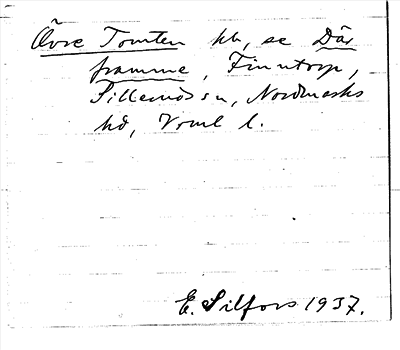 Övre Tomten kb, se Där
framme, Finntorp,
Sillerud sn, Nordmarks
hd, Vrml l.
E. Silfors 1937.